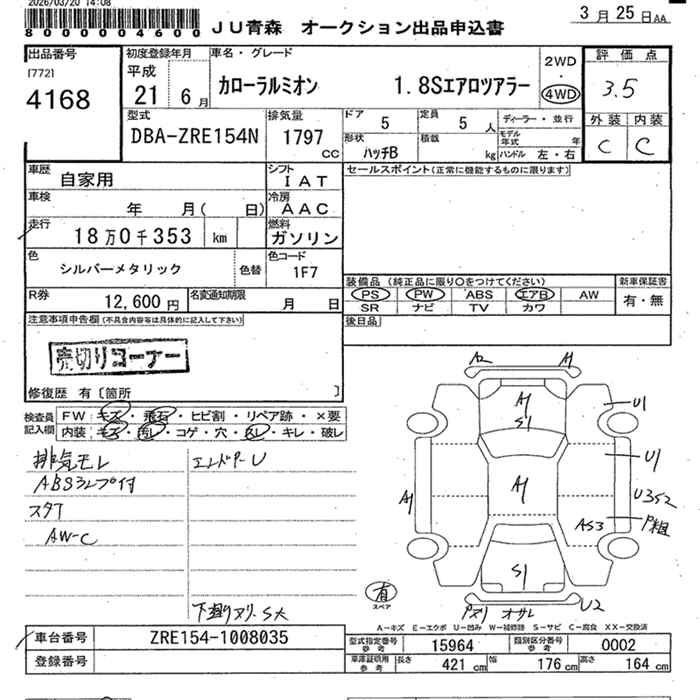 2026/03/20 14:08
80000004600
JU青森 オークション出品申込書
3月25日AA
出品番号
[772]
4168
初度登録年月
平成
21 6月
車名・グレード
カローラルミオン 1.8Sエアロツアラー
2WD
・
4WD
評価点
3.5
外装 内装
C C
型式
DBA-ZRE154N
排気量
1797
CC
ドア
5
定員
5 人
形状
ハッチB
積載
kg
ディーラー・並行
モデル年式 年
ハンドル 左・右
車歴
自家用
シフト
IAT
セールスポイント(正常に機能するものに限ります)
車検
年 月( 日)
冷房
AAC
走行
18万0千353 km
燃料
ガソリン
色
シルバーメタリック
色替
色コード
1F7
装備品 (純正品に限り○をつけてください)
PS PW ABS エアB AW
SR ナビ TV カワ
新車保証書
有・無
R券
12,600 円
名変通知期限
月 日
後日品
注意事項申告欄 (不具合内容等は具体的に記入して下さい)
売切りコーナー
修復歴 有〔箇所 〕
検査員記入欄
FW キズ・飛石・ヒビ割・リペア跡・×要
内装 キズ・汚レ・コゲ・穴・スレ・キレ・破レ
排気モレ
ABSランプ付
スタT
AW-C
エンドP-U
下廻りサリ S大
A2 A1
A1
S1
U1
U1
A1
A1
U3S2
AS3
P粗
S1
有
スペア
U2
A-キズ E-エクボ U-凹み W-補修跡 S-サビ C-腐食 XX-交換済
車台番号
ZRE154-1008035
登録番号
型式指定番号 参考
15964
類別区分番号 参考
0002
車庫証明用 参考
長さ 421 cm
幅 176 cm
高さ 164 cm